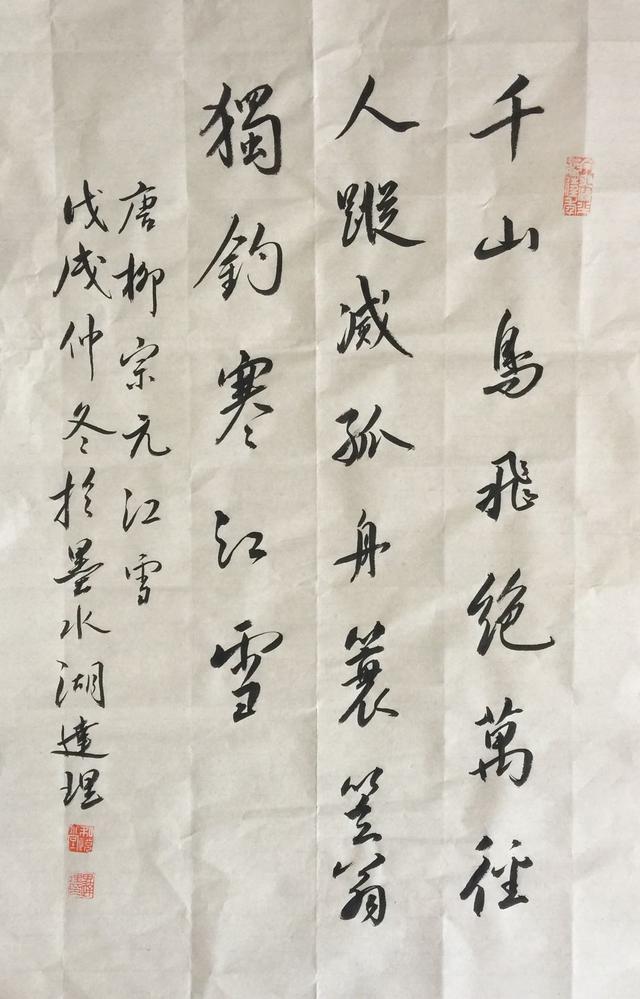 千山鳥飛絶萬徑
人蹤滅孤舟蓑笠翁
獨釣寒江雪
唐柳宗元江雪
戊戌仲冬於墨水湖達理